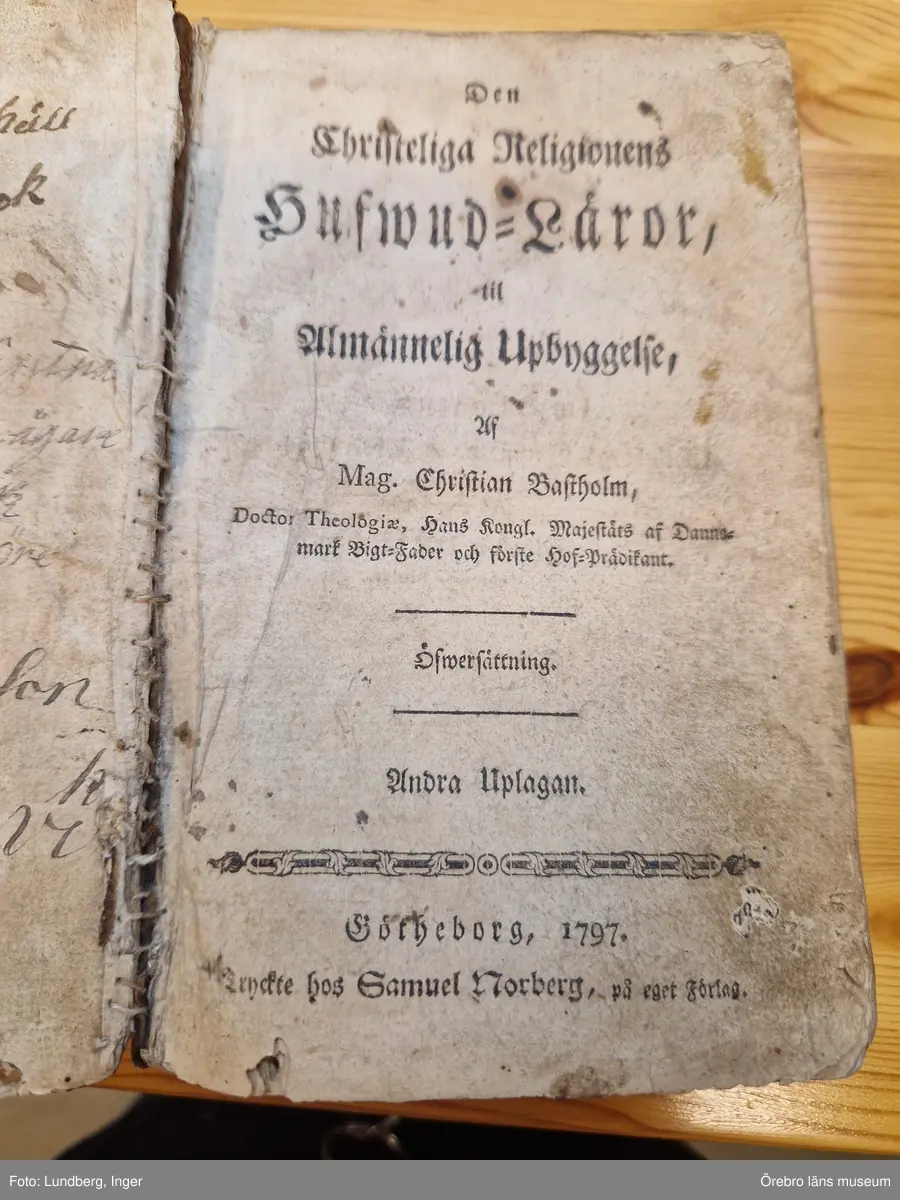 Den
Christeliga Religionens
Hufwud-Läror,
til
Almännelig Upbyggelse,
Af
Mag. Christian Bastholm,
Doctor Theologiæ, Hans Kongl. Majestäts af Danne-
mark Bigt-Fader och förste Hof-Prädikant.
Öfwersättning.
Andra Uplagan.
Götheborg, 1797.
Tryckte hos Samuel Norberg, på eget Förlag.
Foto: Lundberg, Inger
Örebro läns museum